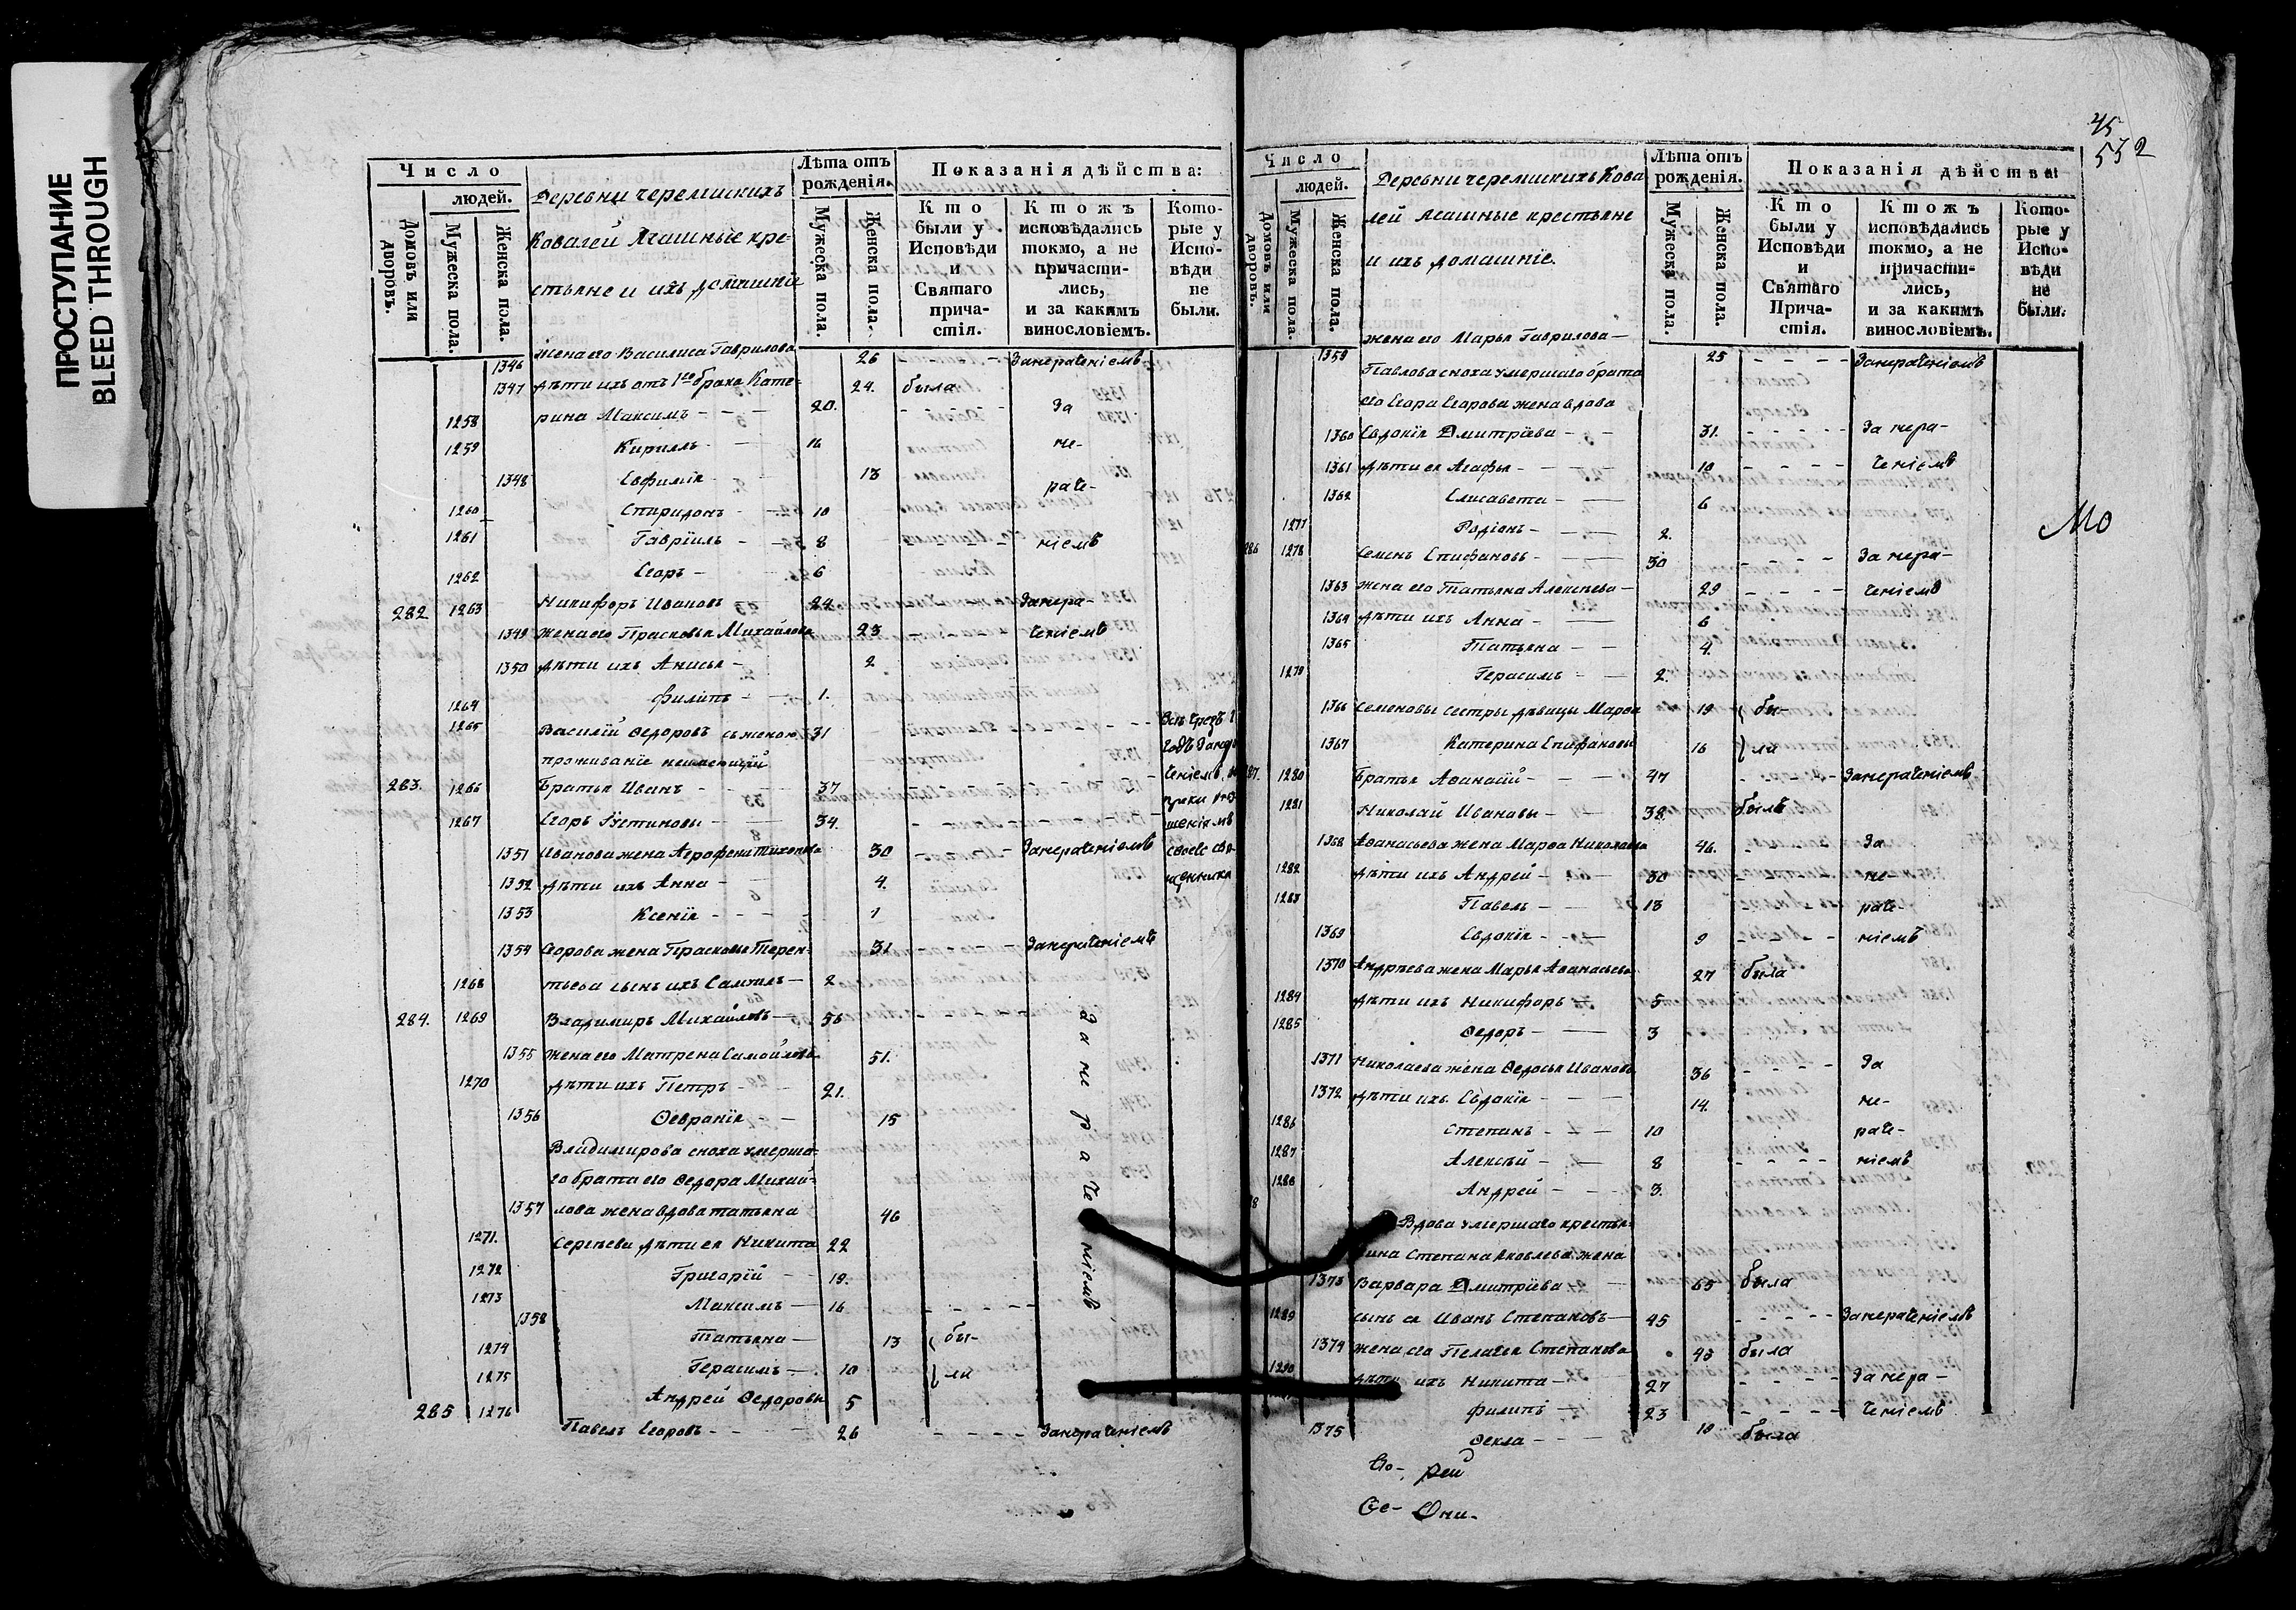 ПРОСТУПАНИЕ
BLEED THROUGH
Число
людей.
Домовъ или дворовъ.
Мужеска пола.
Женска пола.
Деревни черемискихъ
Ковалей Ясашные кре-
стьяне и ихъ домашніе
Лѣта отъ рожденія.
Мужеска пола.
Женска пола.
Показанія дѣйства:
Кто были у Исповѣди и Святаго причастія.
Ктожъ исповѣдались токмо, а не причастились, и за какимъ винословіемъ.
Которые у Исповѣди не были.
1346 жена его Василиса Гаврилова 26 - - - Занераченіемъ
1347 дѣти ихъ отъ 1го брака Кате- 24. была
1258 рина Максимъ - - - 20. - - - - За
1259 Кириллъ - - 16 не-
1348 Евфимія - - 13 раче-
1260 Спиридонъ - - 10
1261 Гавріилъ - - 8 - - - - ніемъ
1262 Егоръ - - 6
282 1263 Никифоръ Ивановъ - 24. - - - Занера-
1349 жена его Прасковья Михайлова 23 - - - ченіемъ
1350 дѣти ихъ Анисья - 2
1264 Филипъ - - 1.
1265 Василій Ѳедоровъ съ женою 31
проживаніе неимеющій
283. 1266 Братья Иванъ - - - 37
1267 Егоръ Устиновы - - 34. - -
1351 Иванова жена Агрофена Тихонова 30 - - Занераченіемъ
1352 дѣти ихъ Анна - - 4.
1353 Ксенія - - - 1
1354 Егорова жена Прасковья Терен- 31 - - - Занераченіемъ
1268 тьева сынъ ихъ Самуилъ - 2
284. 1269 Владимиръ Михайловъ - 56 - - - - Занераченіемъ
1355 жена его Матрена Самойлова 51.
1270 дѣти ихъ Петръ - - 21.
1356 Ѳевранія - - 15
Владимирова сноха умерша-
го брата его Ѳедора Михай-
1357 лова жена вдова татьяна 46
1271. Сергѣева дѣти ея Никита 22
1272 Григорій - - 19.
1273 Максимъ - 16 - - - - -
1358 Татьяна - 13 бы-
1274 Герасимъ - 10 ли
1275 Андрей Ѳедоровы 5
285 1276 Павелъ Егоровъ - - - 26 - - - - Занераченіемъ
45
532
Число
людей.
Домовъ или дворовъ.
Мужеска пола.
Женска пола.
Деревни черемискихъ Кова
лей Ясашные крестьяне
и ихъ домашніе.
Лѣта отъ рожденія.
Мужеска пола.
Женска пола.
Показанія дѣйства:
Кто были у Исповѣди и Святаго Причастія.
Ктожъ исповѣдались токмо, а не причастились, и за какимъ винословіемъ.
Которые у Исповѣди не были.
1359 жена его Марья Гаврилова - 25 - - - - Занераченіемъ
Павлова сноха умершаго брата
его Егора Егорова жена вдова
1360 Евдокія Дмитріева - - 31. - - - - - За нера-
1361 дѣти ея Агафья - - - 10 - - - - ченіемъ
1362 Елисавета - - 6
1277 Родіонъ - - 2.
286 1278 Семенъ Епифановъ - - 30 - - - - За нера-
1363 жена его Татьяна Алексѣева - 29 - - - - ченіемъ
1364 дѣти ихъ Анна - - 6
1365 Татьяна - - 4.
1279 Герасимъ - - 2.
1366 Семеновы сестры дѣвицы Марѳа 19 бы-
1367 Катерина Епифановы 16 ли
287. 1280 Братья Аѳанасій - - - 47 - - - Занераченіемъ
1281 Николай Ивановы - - 38. былъ
1368 Аѳанасьева жена Марѳа Николаева 46. - За
1282 дѣти ихъ Андрей - - - 30 - не-
1283 Павелъ - - 13 раче
1369 Евдокія - - - 9 - - - ніемъ
1370 Андрѣева жена Марья Аѳанасьева 27 была
1284 дѣти ихъ Никифоръ - 5
1285 Ѳедоръ - - 3
1371 Николаева жена Ѳедосья Иванова 36 - - - - За
1372 дѣти ихъ Евдокія - - - 14. не-
1286 Степанъ - - - 10 раче-
1287 Алексѣй - - - 8 - - - - ніемъ
1288 Андрей - - - 3.
Вдова умершаго крестья-
нина Степана Яковлева жена
1373 Варвара Дмитріева - - 65 была
1289 сынъ ея Иванъ Степановъ - 45 - - - - Занераченіемъ
1374 жена его Пелагея Степанова 43 была
1290 дѣти ихъ Никита - 27 - - - - За нера-
Филипъ - 23 - - - - ченіемъ
1375 Ѳекла - - - 19 была
Мо